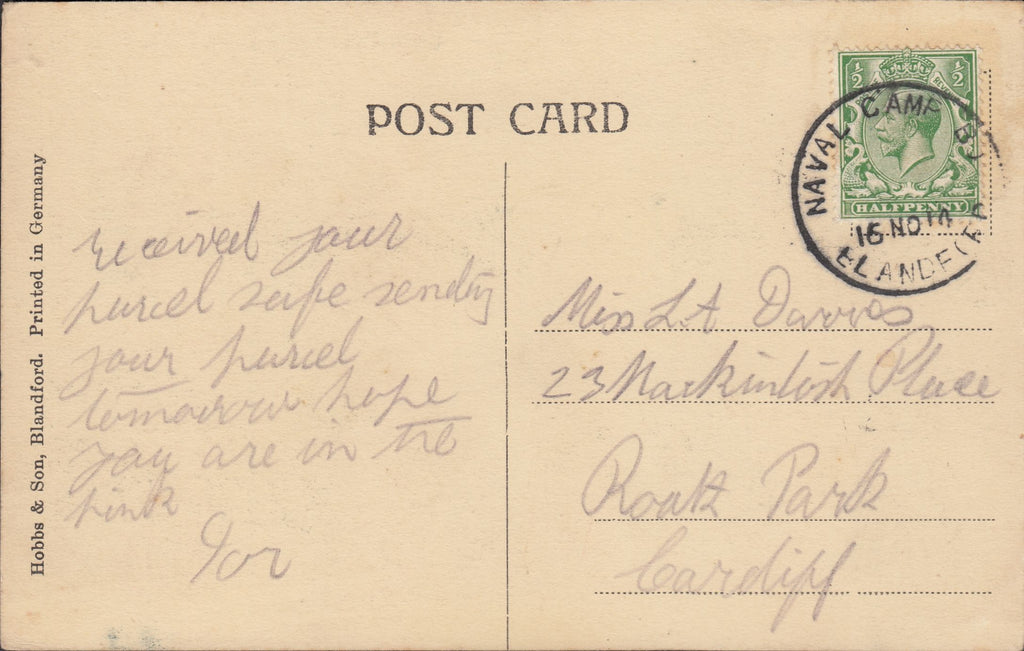 POST CARD
Hobbs & Son, Blandford. Printed in Germany
½ ½
HALFPENNY
NAVAL CAMP
16 NO 14
BLANDFORD
received your
parcel safe sending
your parcel
tomorrow hope
you are in the
pink
Ivor
Miss L A Davies
23 Mackintosh Place
Roath Park
Cardiff